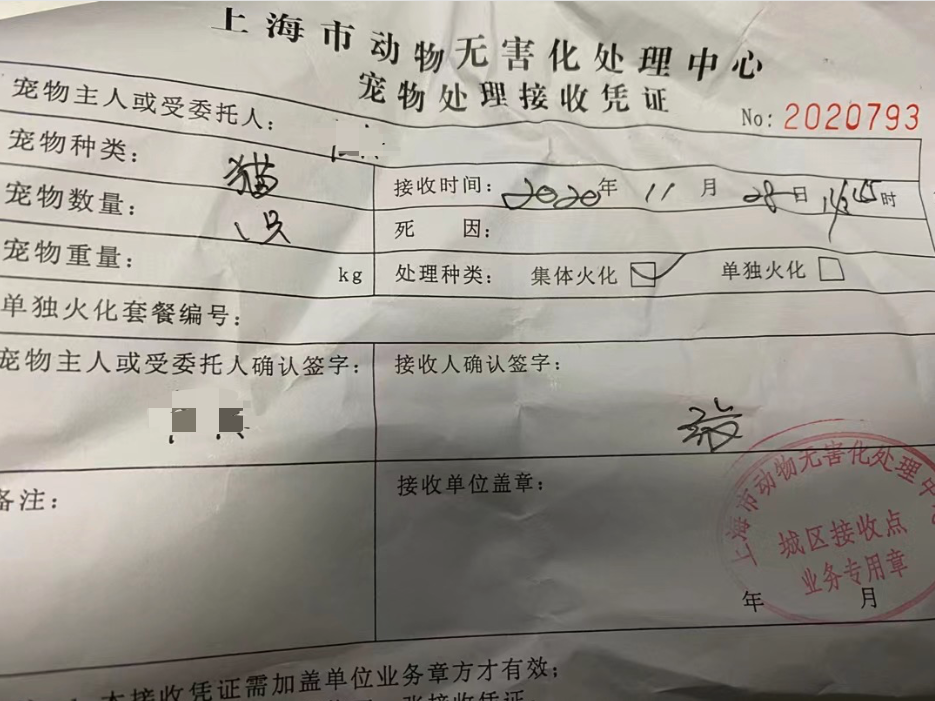 上海市动物无害化处理中心
宠物处理接收凭证
No: 2020793
宠物主人或受委托人:
宠物种类: 猫
接收时间: 2020年 11 月 28 日 时
宠物数量: 1只
死 因:
宠物重量: kg
处理种类: 集体火化 单独火化
单独火化套餐编号:
宠物主人或受委托人确认签字:
接收人确认签字:
备注:
接收单位盖章:
上海市动物无害化处理中
城区接收点
业务专用章
年 月
本接收凭证需加盖单位业务章方才有效;
张接收凭证